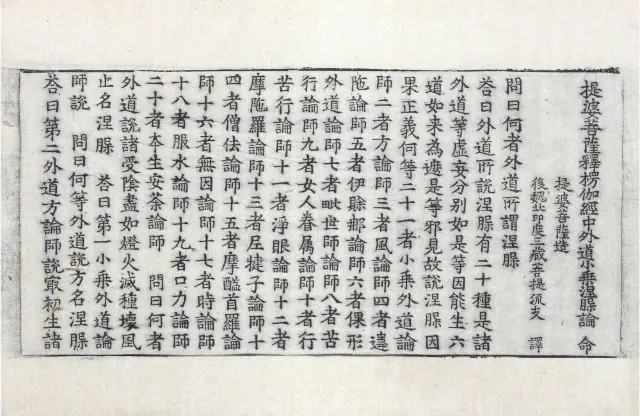 提婆菩薩釋楞伽經中外道小乘涅槃論 命
提婆菩薩造
後魏北印度三藏菩提流支 譯
問曰何者外道所謂涅槃
荅曰外道所說涅槃有二十種是諸
外道等虛妄分別如是等因能生六
道如来為遮是等邪見故說涅槃因
果正義何等二十一者小乘外道論
師二者方論師三者風論師四者違
陁論師五者伊賖那論師六者倮形
外道論師七者毗世師論師八者苦
行論師九者女人眷屬論師十者行
苦行論師十一者淨眼論師十二者
摩陁羅論師十三者尼揵子論師十
四者僧佉論師十五者摩醯首羅論
師十六者無因論師十七者時論師
十八者服水論師十九者口力論師
二十者本生安荼論師 問曰何者
外道說諸受陰盡如燈火滅種壞風
止名涅槃 荅曰第一小乘外道論
師說 問曰何等外道說方名涅槃
荅曰第二外道方論師說最初生諸